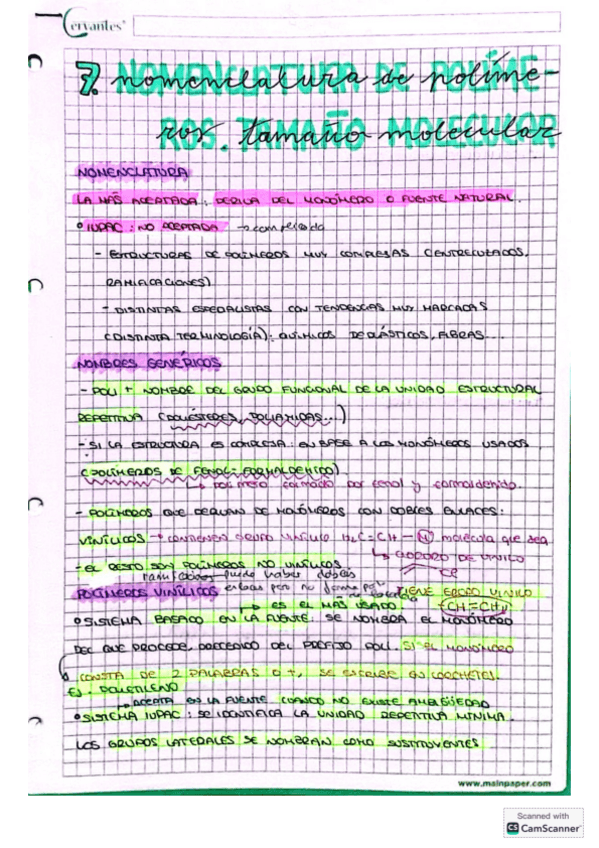 Cervantes
7. nomenclatura de políme-
ros. tamaño molecular
NOMENCLATURA
LA MÁS ACEPTADA: DERIVA DEL MONÓMERO O FUENTE NATURAL.
° IUPAC: NO ACEPTADA → complejido
- ESTRUCTURAS DE POLÍMEROS MUY COMPLEJAS (ENTRECRUZADOS,
RAMIFICACIONES)
- DISTINTAS ESPECIALISTAS CON TENDENCIAS MUY MARCADAS
(DISTINTA TERMINOLOGÍA): QUÍMICOS DE PLÁSTICOS, FIBRAS...
NOMBRES GENÉRICOS
- POLI + NOMBRE DEL GRUPO FUNCIONAL DE LA UNIDAD ESTRUCTURAL
REPETITIVA (POLIÉSTERES, POLIAMIDAS...)
- SI LA ESTRUCTURA ES COMPLEJA: EN BASE A LOS MONÓMEROS USADOS
(POLÍMEROS DE FENOL-FORMALDEHIDO)
↳ formado por fenol y formaldehido.
- POLÍMEROS QUE DERIVAN DE MONÓMEROS CON DOBLES ENLACES:
VINÍLICOS → CONTIENEN GRUPO VINILO H₂C=CH-(M) molécula que sea
↳ CLORURO DE VINILO
- EL RESTO SON POLÍMEROS NO VINÍLICOS.
ramificaciones puede haber dobles
POLÍMEROS VINÍLICOS enlaces pero no forma TIENE GRUPO VINILO
↳ ES EL MÁS USADO. -CH=CH₂
° SISTEMA BASADO EN LA FUENTE: SE NOMBRA EL MONÓMERO
DEL QUE PROCEDE, PRECEDIDO DEL PREFIJO POLI. SI EL MONÓMERO
CONSTA DE 2 PALABRAS O +, SE ESCRIBE EN CORCHETES.
EJ. POLIETILENO
↳ ACEPTA EN LA FUENTE CUANDO NO EXISTE AMBIGÜEDAD
° SISTEMA IUPAC: SE IDENTIFICA LA UNIDAD REPETITIVA MÍNIMA.
LOS GRUPOS LATERALES SE NOMBRAN COMO SUSTITUYENTES
www.mainpaper.com
Scanned with
CS CamScanner